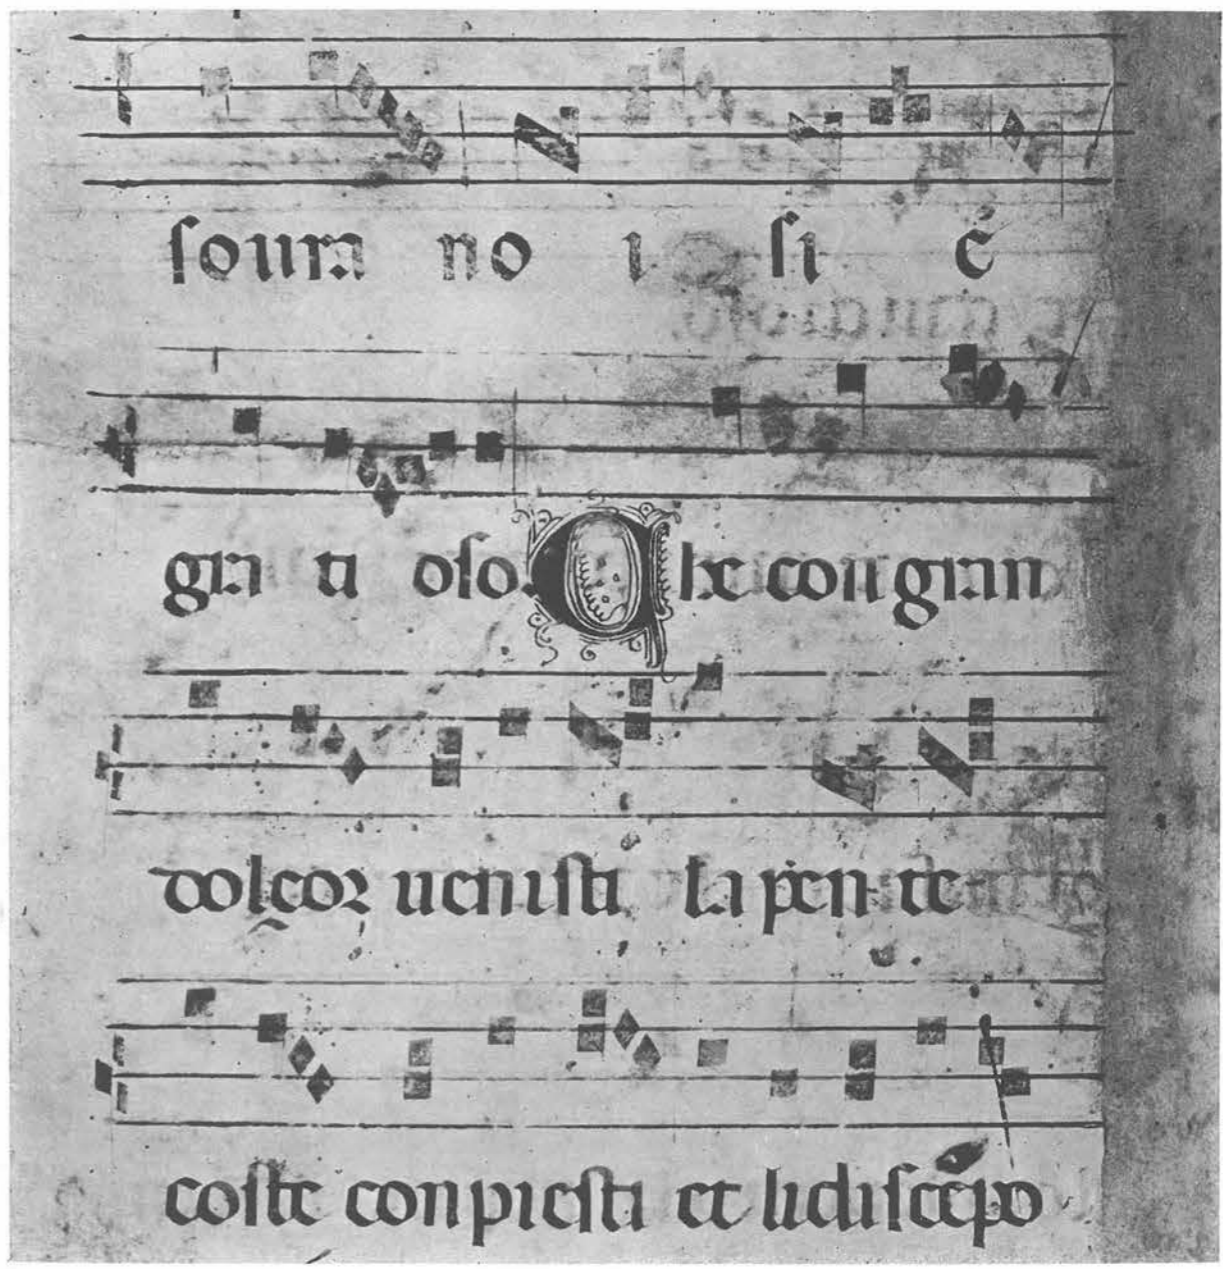 soura no i si é
gra ti oso. Che con gran
dolçor uenisti la pen te
coste conpiesti et li discepo